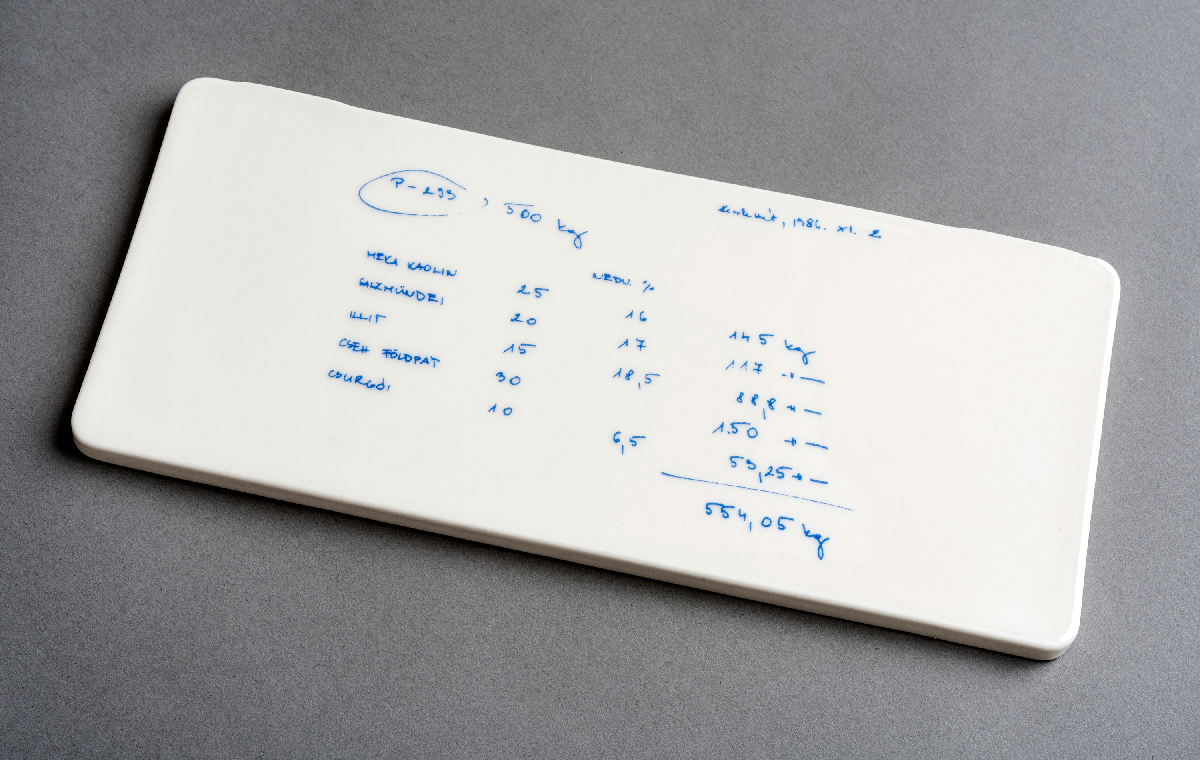 P-293, 500 kg
Kecskemét, 1986. XI. 2
NEDV. %
MEKA KAOLIN 25 16 145 kg
SALZMÜNDEI 20 17 117 -"-
ILLIT 15 18,5 88,8 -"-
CSEH FÖLDPÁT 30 150 -"-
CSURGÓI 10 6,5 53,25 -"-
554,05 kg